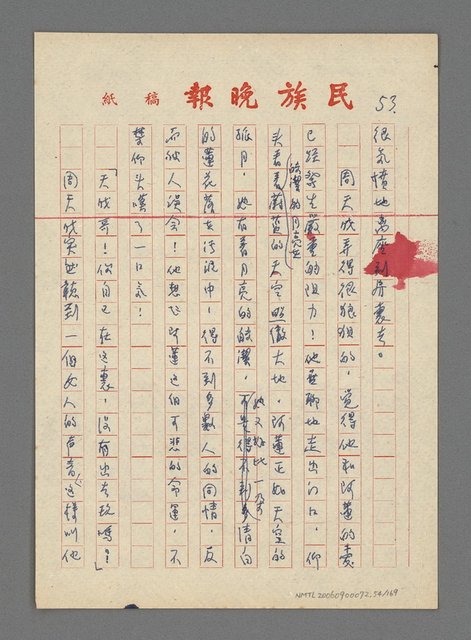 民族晚報 稿紙
53.
很氣憤地離座到房裏去。
周天成弄得很狼狽的,覺得他和阿蓮的愛
已經發生嚴重的阻力!他無聊地走出門口,仰
頭看看蔚藍的天空
皎潔的月亮
照徹大地,阿蓮正如天空的
孤月,她有着月亮的皎潔,
她又好比一朵
清白
的蓮花落在污泥中!得不到多數人的同情,反
而被人誤會!他想起阿蓮這個可悲的命運,不
禁仰头嘆了一口氣!
「天成哥!你自己在這裏,沒有出去玩嗎!」
周天成突然聽到一個女人的声音,這樣叫他
NMTL20060900072_54/169